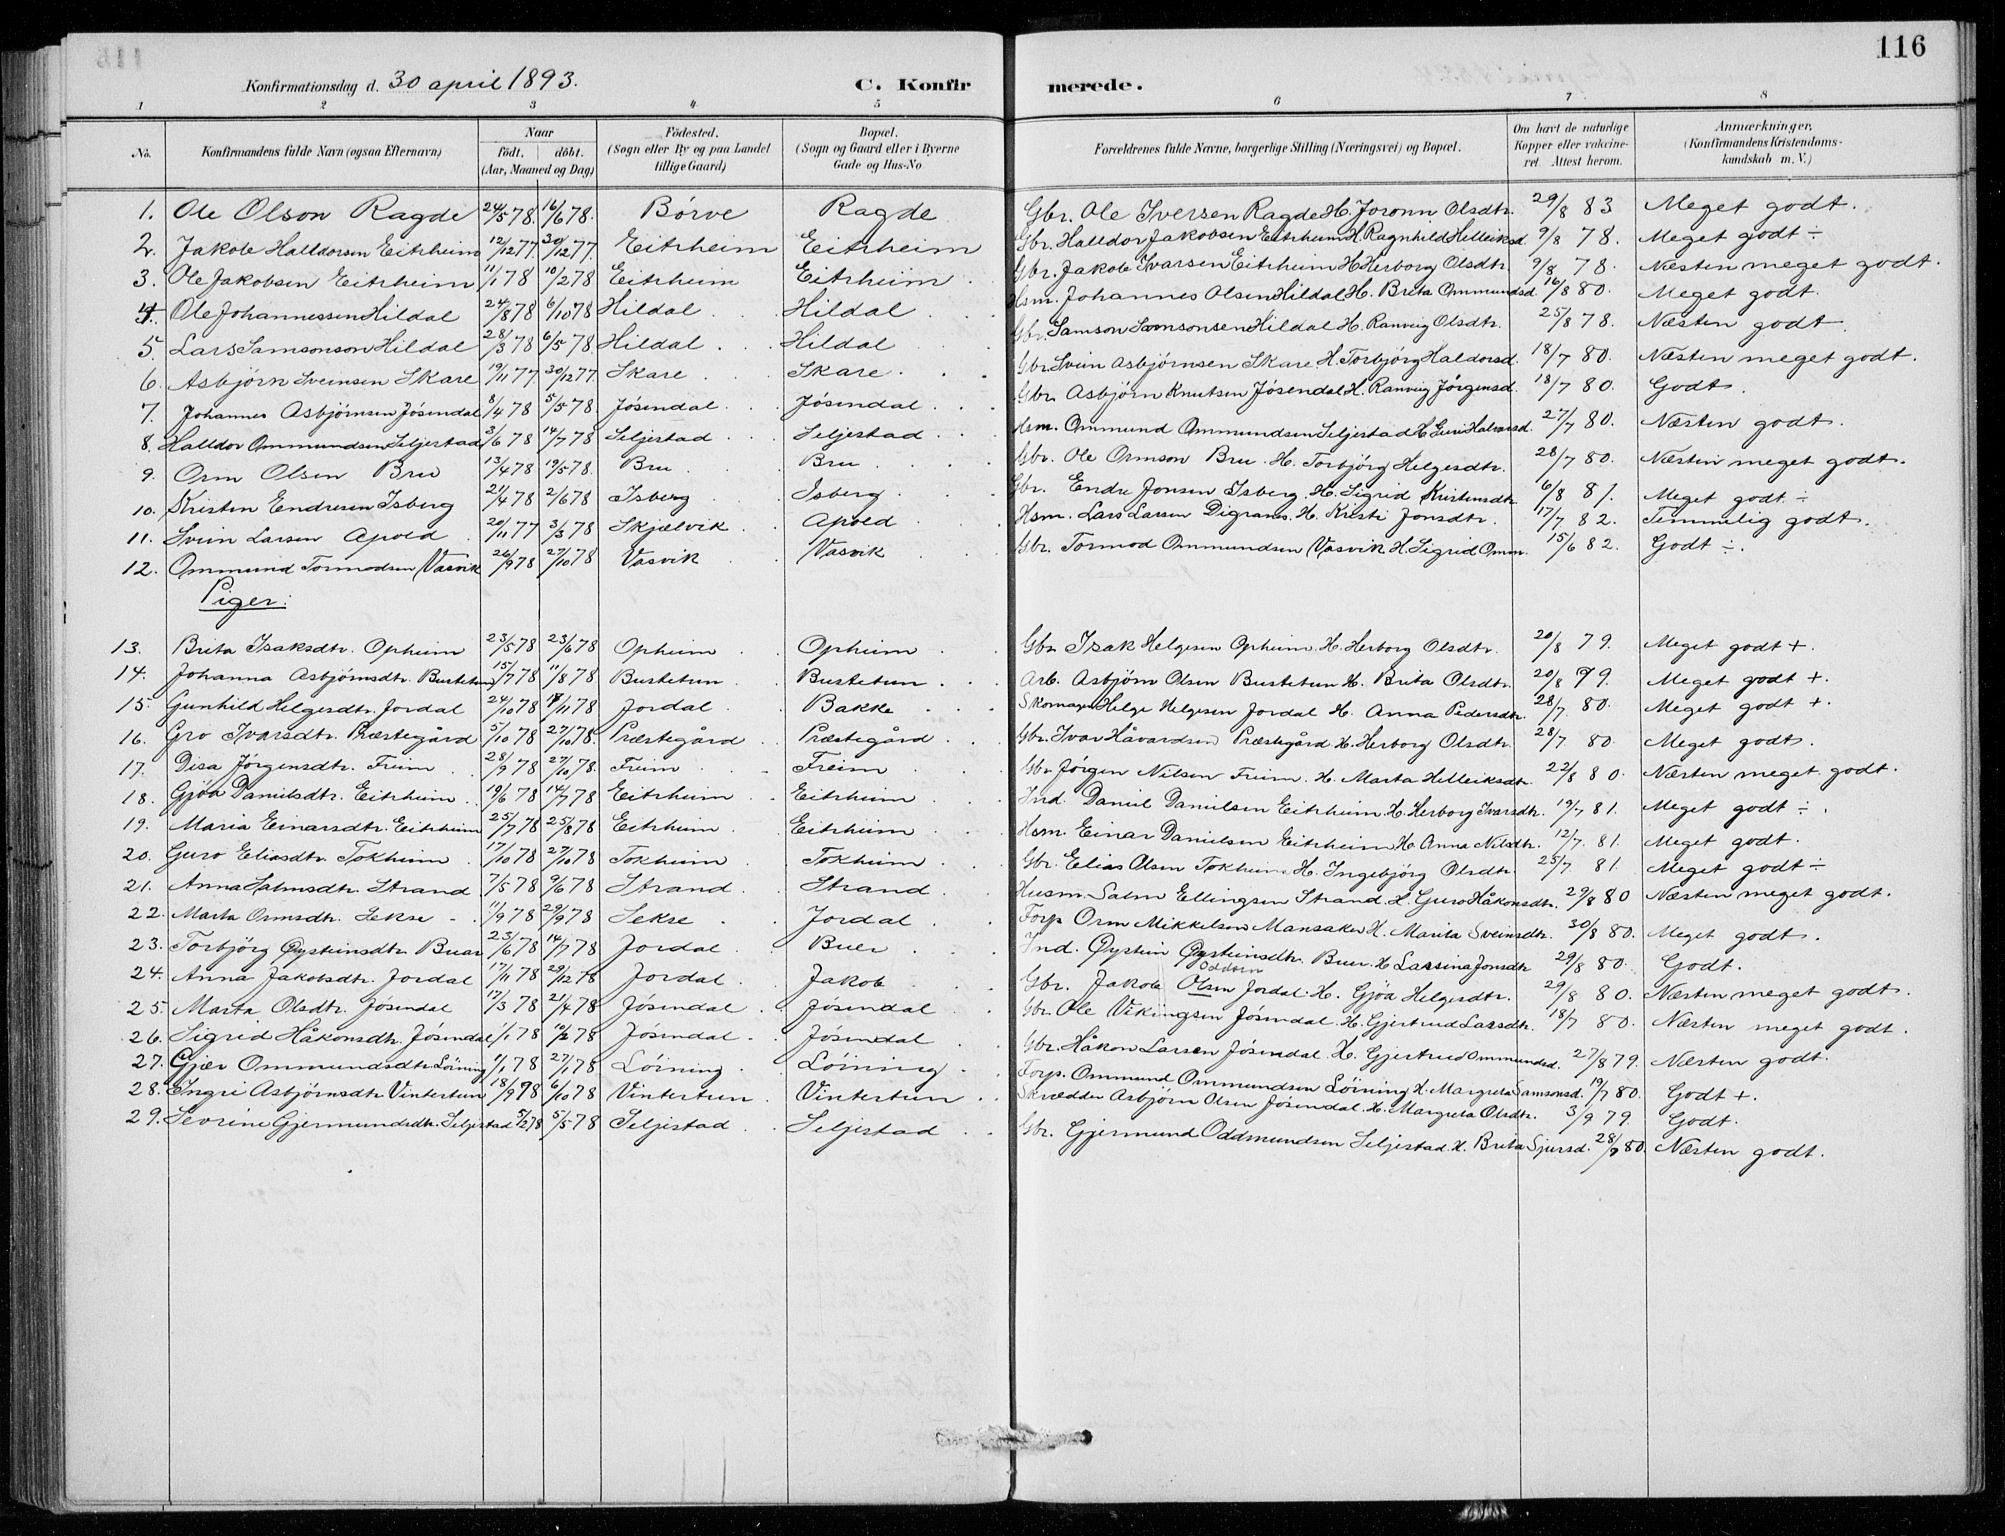 116
Konfirmationsdag d. 30 april 1893. C. Konfirmerede.
1 2 3 4 5 6 7 8
No. Konfirmandens fulde Navn (ogsaa Efternavn) Naar født. døbt. (Aar, Maaned og Dag) Fødested. (Sogn eller By og paa Landet tillige Gaard) Bopæl. (Sogn og Gaard eller i Byerne Gade og Hus-No. Forældrenes fulde Navne, borgerlige Stilling (Næringsvei) og Bopæl. Om havt de naturlige Kopper eller vakcineret. Attest herom. Anmærkninger. (Konfirmandens Kristendomskundskab m. V.)
1. Ole Olson Ragde 24/5 78. 16/6 78. Börve Ragde Gbr. Ole Iversen Ragde H. Joronn Olsdtr. 29/8 83 Meget godt.
2. Jakob Halldorsen Eitrheim 12/12 77. 30/12 77. Eitrheim Eitrheim Gbr. Halldor Jakobsen Eitrheim H. Ragnhild Helleiksd. 9/8 78. Meget godt ÷
3. Ole Jakobsen Eitrheim 11/1 78 10/2 78 Eitrheim Eitrheim Gbr. Jakob Ivarsen Eitrheim H. Herborg Olsdtr. 9/8 78. Næsten meget godt.
4. Ole Johannessen Hildal 24/8 78 6/10 78 Hildal Hildal Hsm. Johannes Olsen Hildal H. Brita Ommundsd. 16/8 80. Meget godt.
5. Lars Samsonson Hildal 28/3 78 6/5 78 Hildal Hildal Gbr. Samson Samsonsen Hildal H. Ranveig Olsdtr. 25/8 78. Næsten godt.
6. Asbjörn Sveinsen Skare 19/11 77 30/12 77. Skare Skare Gbr Svein Asbjörnsen Skare H. Torbjörg Haldorsd. 18/7 80. Næsten meget godt.
7. Johannes Asbjörnsen Jösendal 8/4 78 5/5 78. Jösendal Jösendal Gbr. Asbjörn Knutsen Jösendal H. Ranveig Jörgensd. 18/7 80. Godt.
8. Halldor Ommundsen Seljestad 3/6 78 14/7 78 Seljestad Seljestad Hsm. Ommund Ommundsen Seljestad H. Guri Halvorsd. 27/7 80. Næsten godt.
9. Orm Olsen Bru 13/4 78 19/5 78. Bru Bru Gbr. Ole Ormson Bru H. Torbjörg Helgesdtr. 28/7 80. Næsten meget godt.
10. Kristen Endresen Isberg 21/4 78 2/6 78 Isberg Isberg Gbr. Endre Jonsen Isberg H. Sigrid Kristensdtr 6/8 81. Meget godt ÷
11. Svein Larsen Apold 20/11 77 3/3 78 Skjælvik Apold Hsm. Lars Larsen Digranes H. Kristi Jonsdtr. 17/7 82. Temmelig godt.
12. Ommund Tormodsen Vasvik 26/9 78 27/10 78 Vasvik Vasvik Gbr. Tormod Ommundsen Vasvik H. Sigrid Omm. 15/6 82. Godt ÷.
Piger:
13. Brita Isaksdtr. Opheim 23/5 78 23/6 78 Opheim Opheim Gbr Isak Helgesen Opheim H. Herborg Olsdtr. 20/8 79. Meget godt +.
14. Johanna Asbjörnsdtr. Bustetun 15/7 78 11/8 78 Bustetun Bustetun Arb. Asbjörn Olsen Bustetun H. Brita Olsdtr. 20/8 79. Meget godt +.
15. Gunhild Helgesdtr. Jordal 24/10 78 17/11 78 Jordal Bakke Skomager Helge Helgesen Jordal H. Anna Pedersdtr. 28/7 80. Meget godt +.
16. Gro Ivarsdtr. Præstegård 5/10 78 27/10 78. Præstegård Præstegård Gbr. Ivar Håvardsen Præstegård H. Herborg Olsdtr. 28/7 80. Meget godt.
17. Disa Jörgensdtr. Freim 28/9 78 27/10 78. Freim Freim Gbr. Jörgen Nilsen Freim H. Marta Helleiksdtr. 22/8 80. Næsten meget godt.
18. Gjöa Danielsdtr. Eitrheim 19/6 78 14/7 78 Eitrheim Eitrheim Ind. Daniel Danielsen Eitrheim H. Herborg Ivarsdtr. 19/7 81. Meget godt ÷.
19. Maria Einarsdtr. Eitrheim 25/7 78 25/8 78 Eitrheim Eitrheim Hsm. Einar Danielsen Eitrheim H. Anna Nilsdtr. 12/7. 81. Meget godt.
20. Guro Eliasdtr. Tokheim 17/10 78 27/10 78 Tokheim Tokheim Gbr. Elias Olsen Tokheim H. Ingebjörg Olsdtr. 25/7 81 Meget godt ÷
21. Anna Salmsdtr. Strand 7/5 78 9/6 78 Strand Strand Husm. Salm Ellingsen Strand H. Guro Håkonsdtr. 29/8 80 Næsten meget godt.
22. Marta Ormsdtr. Sekse 11/9 78 29/9 78 Sekse Jordal Forp. Orm Mikkelsen Mansaker H. Marita Sveinsdtr. 30/8 80. Meget godt.
23. Torbjörg Øysteinsdtr Buar 23/6 78 14/7 78 Jordal Buer Ind. Øystein Øysteinsdtr Buer H Larsina Jonsdtr 29/8 80. Godt.
24. Anna Jakobsdtr. Jordal 17/11 78 29/12 78 Jordal Jakob Gbr. Jakob Olsen Oddsen Jordal H. Gjöa Helgesdtr. 29/8 80. Næsten meget godt.
25. Marta Olsdtr. Jösendal 17/3 78 21/4 78 Jösendal Jösendal Gbr. Ole Vikingsen Jösendal H. Gjertrud Larsdtr. 18/7 80. Næsten meget godt.
26. Sigrid Håkonsdtr. Jösendal 1/1 78 10/2 78 Jösendal Jösendal Gbr. Håkon Larsen Jösendal H. Gjertrud Ommundsd. 27/8 79. Næsten godt.
27. Gjær Ommundsdtr Löining 1/1 78 27/1 78 Löining Löining Forp. Ommund Ommundsen Löining H. Margreta Samsonsd. 19/7 80. Godt +.
28. Ingri Asbjörnsdtr Vintertun 18/9 78 6/10 78 Vintertun Vintertun Skrædder Asbjörn Olsen Jösendal H. Margreta Olsdtr. 3/9 79 Godt.
29. Sevrine Gjermundsdtr. Seljestad 5/2 78 5/5 78 Seljestad Seljestad Gbr. Gjermund Oddmundsen Seljestad H. Brita Sjursd. 28/7 80. Næsten godt.